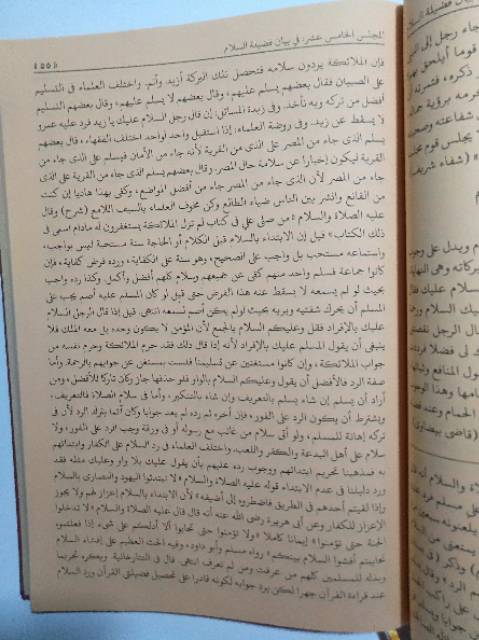 المجلس الخامس عشر: في بيان فضيلة السلام
فإن الملائكة يردون سلامه فتحصل تلك البركة أزيد وأتم. واختلف العلماء في التسليم
على الصبيان فقال بعضهم يسلم عليهم، وقال بعضهم لا يسلم عليهم، وقال بعضهم التسليم
أفضل من تركه وبه نأخذ. وفي زبدة المسائل: إن قال رجل السلام عليك يا زيد فرد عليه عمرو
لا يسقط عن زيد. وفي روضة العلماء: إذا استقبل واحد لواحد اختلف الفقهاء، قال بعضهم
يسلم الذى جاء من المصر على الذى من القرية لأنه جاء من الأمن فيسلم على الذى جاء من
القرية ليكون إخبارا عن سلامة حال المصر. وقال بعضهم يسلم الذى جاء من القرية على الذى
جاء من المصر لأن الذى جاء من المصر جاء من أفضل المواضع، وكفى بهذا هاديا إن كنت
من القانع وانشر بين الناس ضياء الطالع وكن مخوف العلماء بالسيف اللامع (شرح) وقال
عليه الصلاة والسلام «من صلى علي في كتاب لم تزل الملائكة يستغفرون له مادام اسمى في
ذلك الكتاب» قيل إن الابتداء بالسلام قبل الكلام أو الحاجة سنة مستحبة ليس بواجب،
واستماعه مستحب بل واجب على الصحيح، وهو سنة على الكفاية، ورده فرض كفاية، فإن
كانوا جماعة فسلم واحد منهم كفى عن جميعهم وسلام كلهم أفضل وأكمل. وكذا رده واجب
بحيث لو لم يسمعه لا يسقط عنه هذا الفرض حتى قيل لو كان المسلم عليه أصم يجب على
المسلم أن يحرك شفتيه ويريه بحيث لو لم يكن أصم لسمعه انتهى. قيل إذا قال الرجل السلام
عليك بالإفراد فقل وعليكم السلام بالجمع لأن المؤمن لا يكون وحده بل معه الملك فلا
ينبغى أن يقول المسلم عليك بالإفراد لأنه إذا قال ذلك فقد حرم الملائكة وحرم نفسه من
جواب الملائكة، وإن كانوا مستغنين عن تسليمنا فلست بمستغن عن جوابهم بالرحمة. وأما
صفة الرد فالأفضل أن يقول وعليكم السلام بالواو فلو حذفها جاز وكان تاركا للأفضل، ومن
أراد أن يسلم إن شاء يسلم بالتعريف وإن شاء بالتنكير، وأما في سلام الصلاة فالتعريف،
ويشترط أن يكون الرد على الفور، فإن أخره ثم رده لم يعد جوابا وكان آثما بترك الرد لأن في
تركه إهانة للمسلم، ولو أتى سلام من غائب مع رسوله أو في ورقة وجب الرد على الفور، ولا
سلام على أهل البدعة والكفر واللعب. واختلف العلماء في رد السلام على الكفار وابتدائهم
به فمذهبنا تحريم ابتدائهم ووجوب رده عليهم بأن يقول عليك بلا واو وعليك مثله فقد
ورد دليلنا في عدم الابتداء قوله عليه الصلاة والسلام «لا تبتدئوا اليهود والنصارى بالسلام
وإذا لقيتم أحدهم في الطريق فاضطروه إلى أضيقه» لأن الابتداء بالسلام إعزاز لهم ولا يجوز
الإعزاز للكفار وعن أبى هريرة رضى الله عنه أنه قال قال عليه الصلاة والسلام «لا تدخلوا
الجنة حتى تؤمنوا» إيمانا كاملا «ولا تؤمنوا حتى تحابوا ألا أدلكم على شىء إذا فعلتموه
تحاببتم أفشوا السلام بينكم» رواه مسلم وأبو داود، وفيه الحث العظيم على إفشاء السلام
وبذله للمسلمين كلهم من عرفت ومن لم تعرف انتهى. قال في التتارخانية: ويكره تحريما
عند قراءة القرآن جهرا لكن يرد جوابه لكونه قادرا على تحصيل فضيلتى القرآن ورد السلام